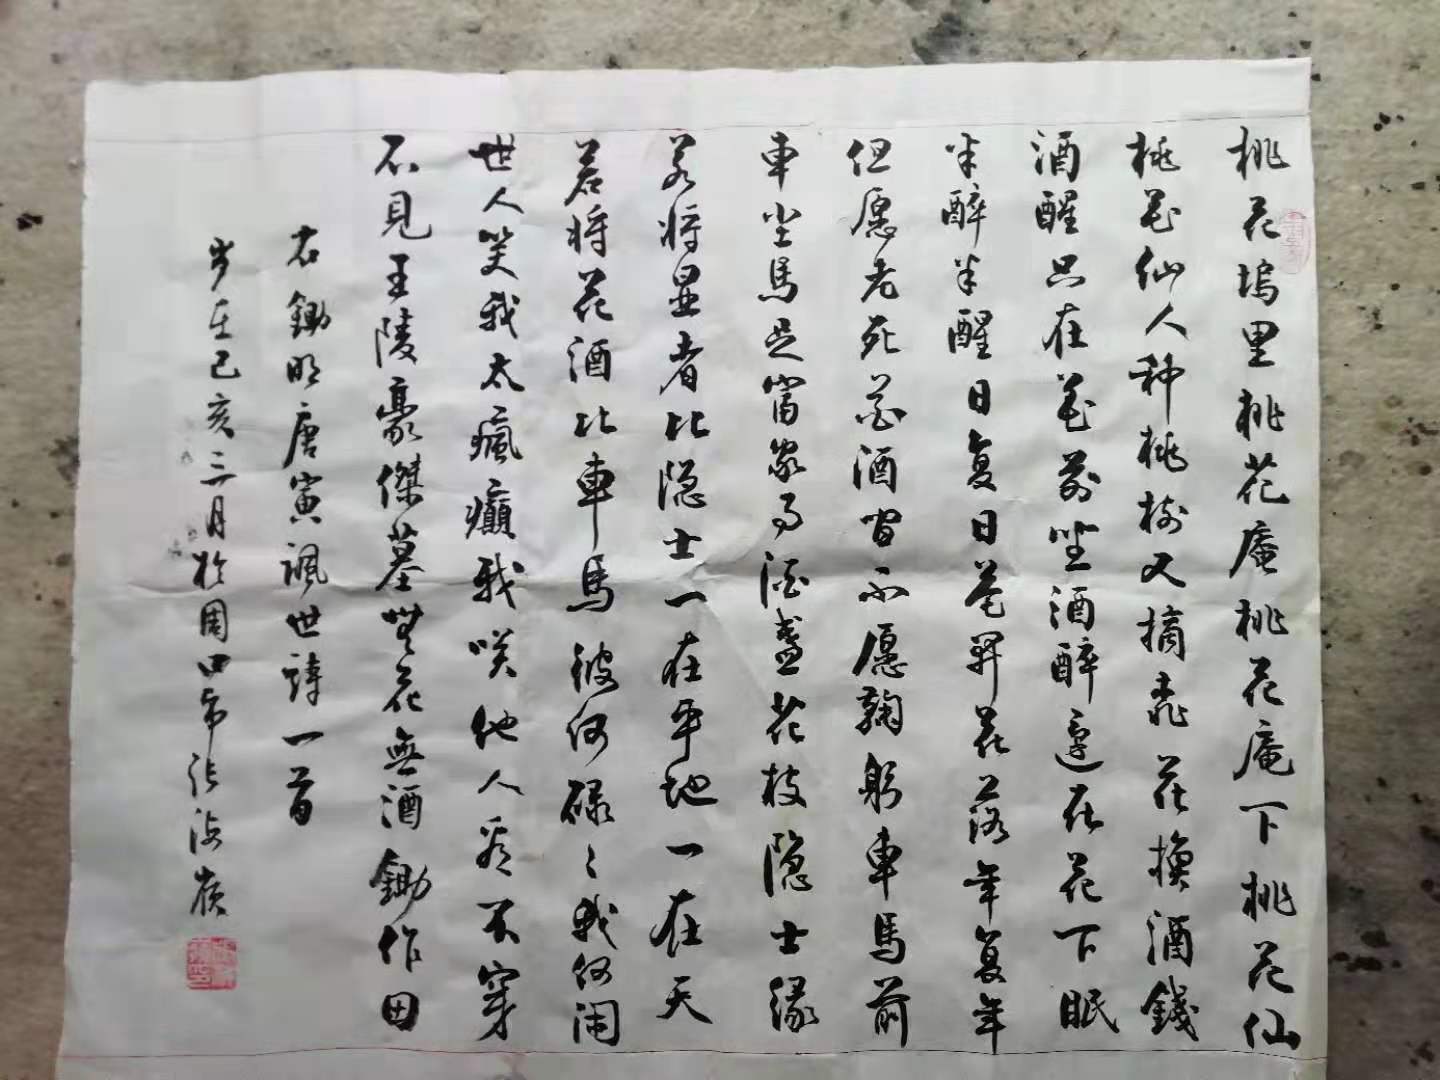 桃花坞里桃花庵桃花庵下桃花仙
桃花仙人种桃树又摘桃花换酒錢
酒醒只在花前坐酒醉還在花下眠
半醉半醒日复日花開花落年复年
但愿老死花酒間不愿鞠躬車馬前
車尘馬足富家事酒盏花枝隐士缘
若将显者比隐士一在平地一在天
若将花酒比車馬彼何碌々我何闲
世人笑我太瘋癲我咲他人看不穿
不見五陵豪傑墓無花無酒鋤作田
右錄明唐寅諷世詩一首
岁在己亥三月於周口市張海嶺